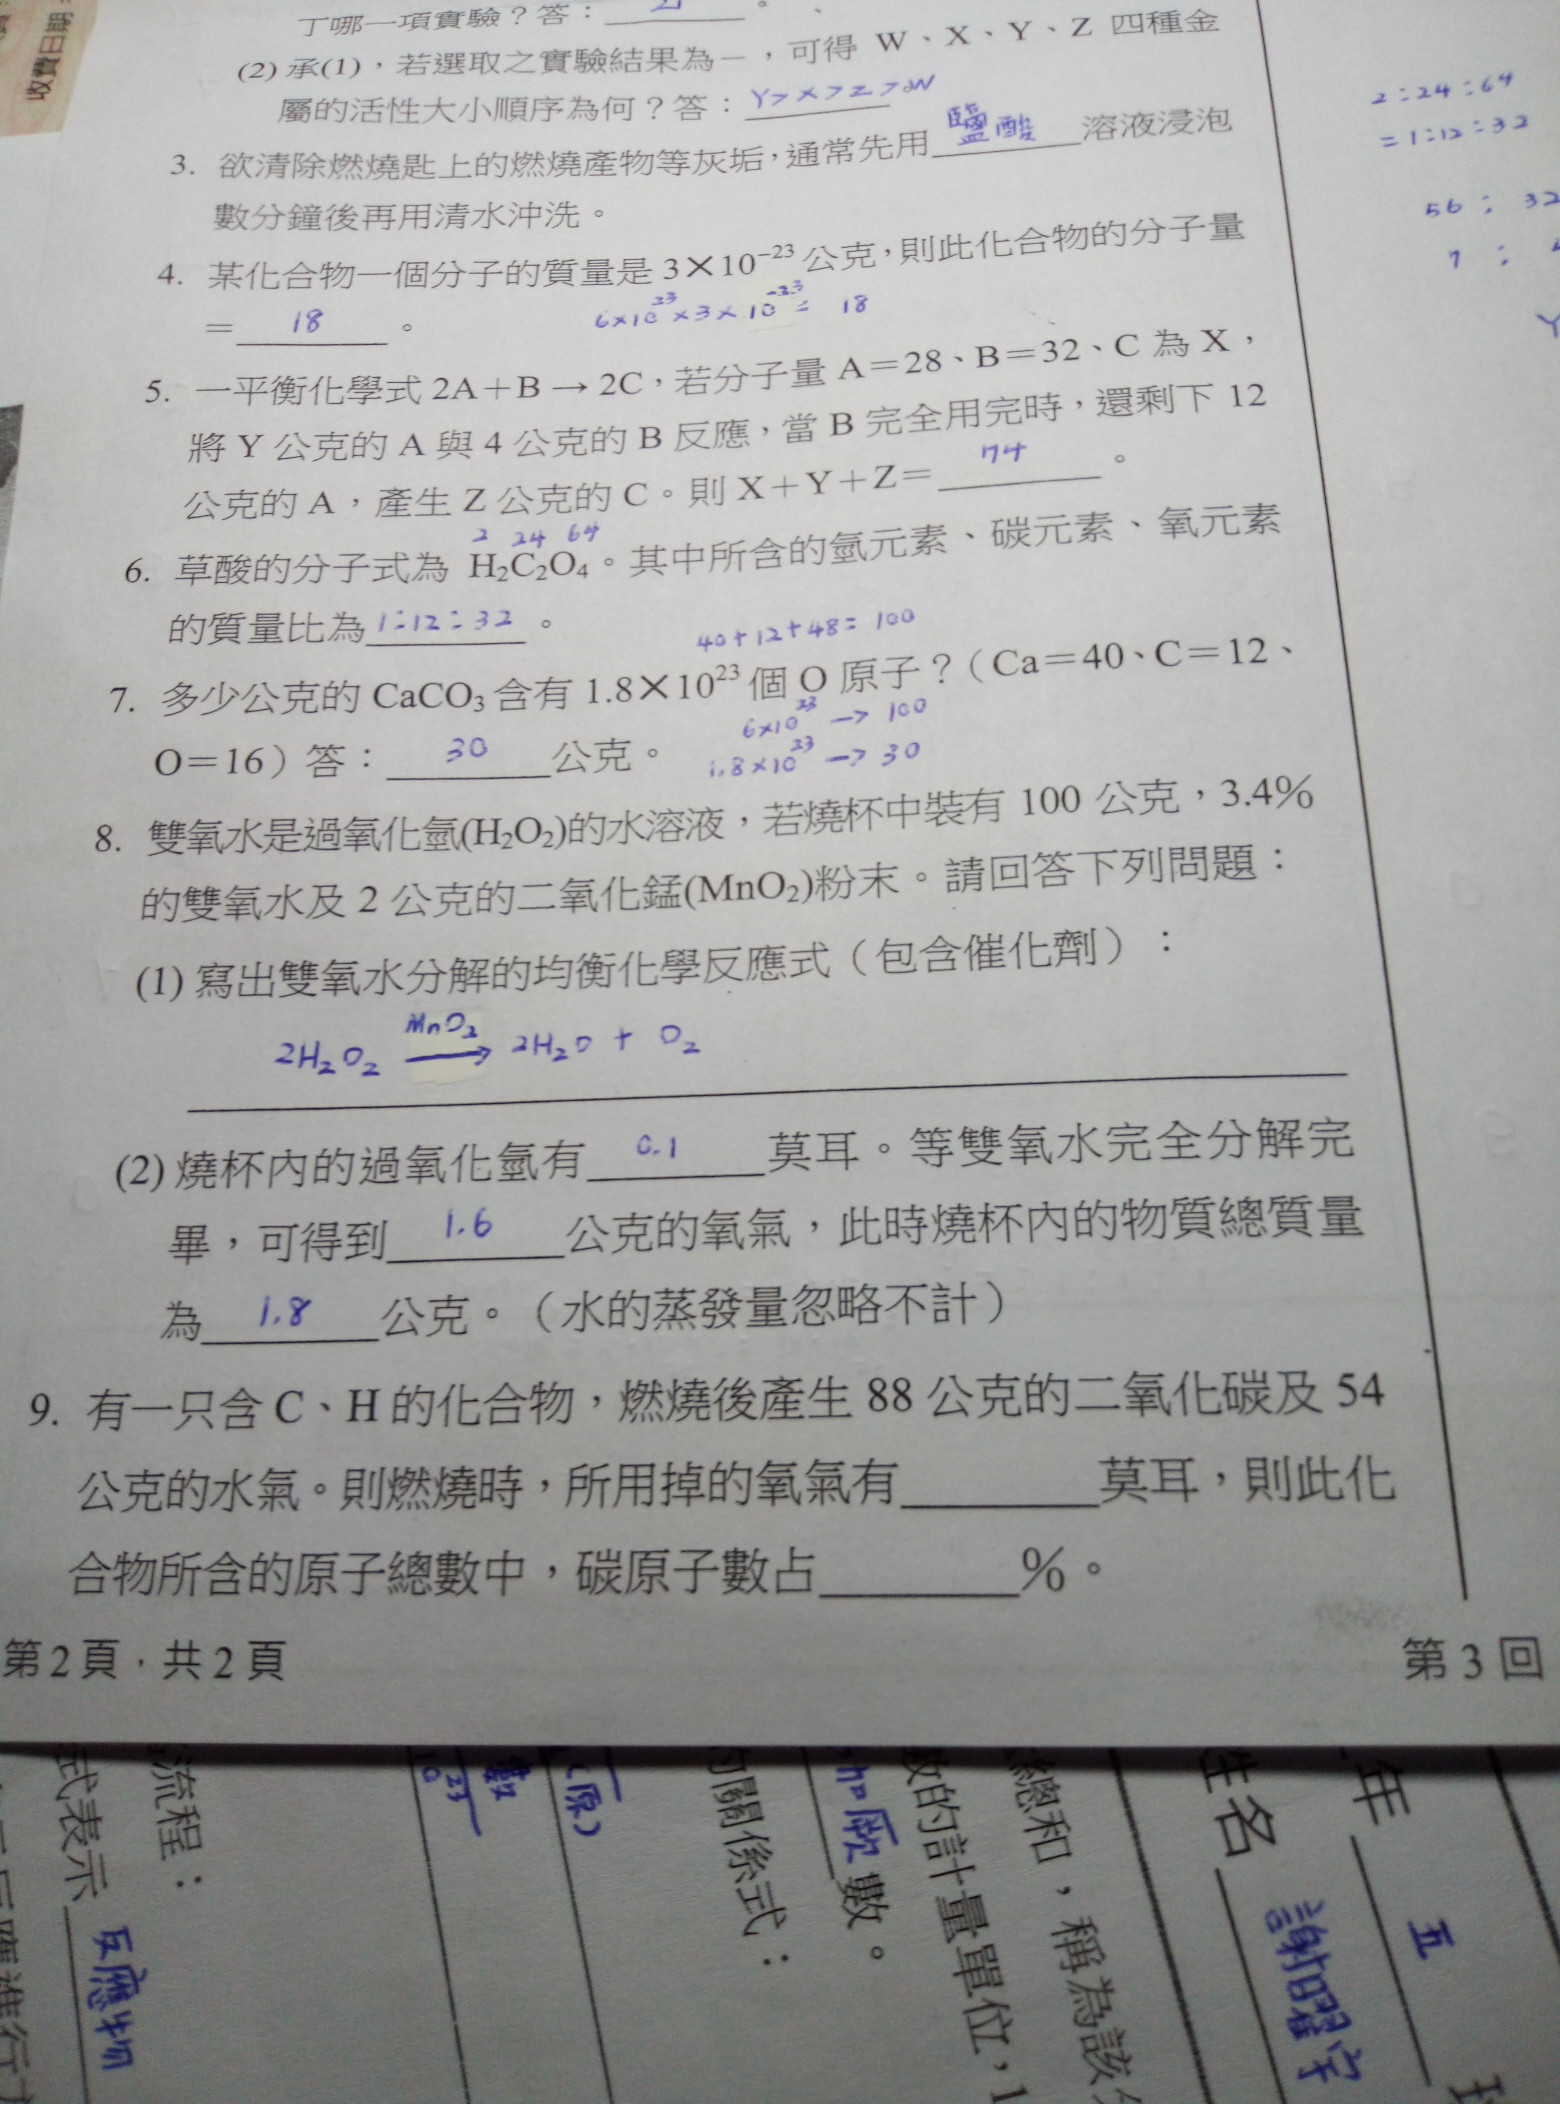 收費日期
丁哪一項實驗？答：
(2) 承(1)，若選取之實驗結果為－，可得 W、X、Y、Z 四種金
屬的活性大小順序為何？答：Y>X>Z>W
3. 欲清除燃燒匙上的燃燒產物等灰垢，通常先用鹽酸溶液浸泡
數分鐘後再用清水沖洗。
4. 某化合物一個分子的質量是 3×10⁻²³ 公克，則此化合物的分子量
＝18。
6×10²³×3×10⁻²³= 18
5. 一平衡化學式 2A＋B → 2C，若分子量 A＝28、B＝32、C 為 X，
將 Y 公克的 A 與 4 公克的 B 反應，當 B 完全用完時，還剩下 12
公克的 A，產生 Z 公克的 C。則 X＋Y＋Z＝74。
2 24 64
6. 草酸的分子式為 H₂C₂O₄。其中所含的氫元素、碳元素、氧元素
的質量比為1:12:32。
40+12+48= 100
7. 多少公克的 CaCO₃ 含有 1.8×10²³ 個 O 原子？（Ca＝40、C＝12、
O＝16）答：30公克。
6×10²³ → 100
1.8×10²³ → 30
8. 雙氧水是過氧化氫(H₂O₂)的水溶液，若燒杯中裝有 100 公克，3.4%
的雙氧水及 2 公克的二氧化錳(MnO₂)粉末。請回答下列問題：
(1) 寫出雙氧水分解的均衡化學反應式（包含催化劑）：
MnO₂
2H₂O₂ → 2H₂O + O₂
(2) 燒杯內的過氧化氫有0.1莫耳。等雙氧水完全分解完
畢，可得到1.6公克的氧氣，此時燒杯內的物質總質量
為1.8公克。（水的蒸發量忽略不計）
9. 有一只含 C、H 的化合物，燃燒後產生 88 公克的二氧化碳及 54
公克的水氣。則燃燒時，所用掉的氧氣有 莫耳，則此化
合物所含的原子總數中，碳原子數占 %。
第 2 頁．共 2 頁
第 3 回
2:24:64
=1:12:32
56 : 32
7 :
Y
年 五
姓名 謝曜宇
總和，稱為該
數的計量單位，1
數。
的關係式：
(原)
數
23
流程：
式表示 反應物